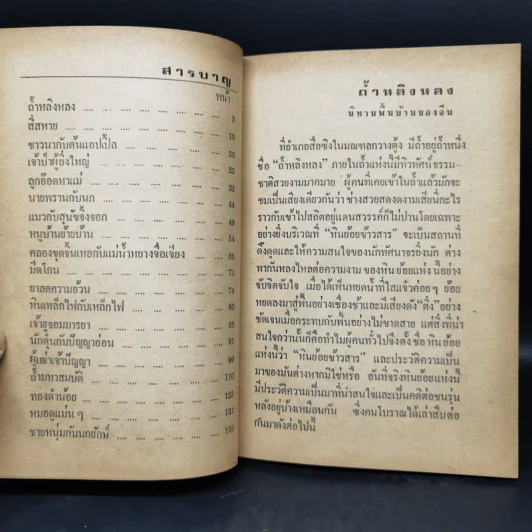 สารบาญ
หน้า
ถ้ำหลิงหลง .... .... .... .... .... 3
สี่สหาย .... .... .... .... .... 10
ชาวนากับต้นแอปเปิ้ล .... .... .... 20
เจ้าป่าผู้ยิ่งใหญ่ .... .... .... .... 25
ลูกอ๊อดหาแม่ .... .... .... ....
นายพรานกับนก .... .... .... ....
แมวกับสุนัขจิ้งจอก .... .... .... 49
หนูบ้านย้ายบ้าน .... .... .... .... 54
คลองขุดจิ้นเหอกับแม่น้ำหยางจื่อเจียง .... 65
มีดโกน .... .... .... .... .... 71
ยาลดความอ้วน .... .... .... ....
หินเหล็กไฟกับเหล็กไฟ .... .... ....
เจ้าอูจอมมารยา .... .... .... ....
นักตุ๋นกับปัญญาอ่อน .... .... .... 91
ผู้เฒ่าเจ้าปัญญา .... .... .... .... 99
ถ้ำมหาสมบัติ .... .... .... .... 110
ทองคำน้อย .... .... .... .... 123
หมอดูแม่น ๆ .... .... .... .... 131
ชายหนุ่มกับนกยักษ์ .... .... ....
ถ้ำหลิงหลง
นิทานพื้นบ้านของจีน
ที่อำเภอสือซิงในมณฑลกวางตุ้ง มีถ้ำอยู่ถ้ำหนึ่ง
ชื่อ “ถ้ำหลิงหลง” ภายในถ้ำแห่งนี้มีทิวทัศน์ธรรม-
ชาติสวยงามมากมาย ผู้คนที่เคยเข้าในถ้ำแล้วมักจะ
ชมเป็นเสียงเดียวกันว่า ช่างสวยสดงดงามเสียนี่กะไร
ราวกับเข้าไปสถิตอยู่แดนสวรรค์ก็ไม่ปานโดยเฉพาะ
อย่างยิ่งบริเวณที่ “หินย้อยข้าวสาร” จะเป็นสถานที่
ดึงดูดและให้ความสนใจของนักทัศนาจรยิ่งนัก ต่าง
พากันหลงใหลต่อความงาม ของหิน ย้อยแห่ง นี้อย่าง
จับจิตจับใจ เมื่อได้เห็นหยดน้ำที่ใสแจ๋วค่อยๆ ย้อย
หยดลงมาสู่พื้นอย่างเชื่องช้าและมีเสียงดัง“ติ๋ง”อย่าง
ชัดเจนเมื่อกระทบกับพื้นอย่างไม่ขาดสาย แต่สิ่งที่น่า
สนใจกว่านั้นก็คือทำไมผู้คนทั่วไปจึงตั้ง ชื่อ หิน ย้อย
แห่งนี้ว่า “หินย้อยข้าวสาร” และประวัติความเป็น
มาของมันต่างหากมิใช่หรือ อันที่จริงหินย้อยแห่งนี้
มีประวัติความเป็นมาที่น่าสนใจและเป็นคติต่อชนรุ่น
หลังอยู่บ้างเหมือนกัน ซึ่งคนโบราณได้เล่าสืบต่อ
กันมาดังต่อไปนี้